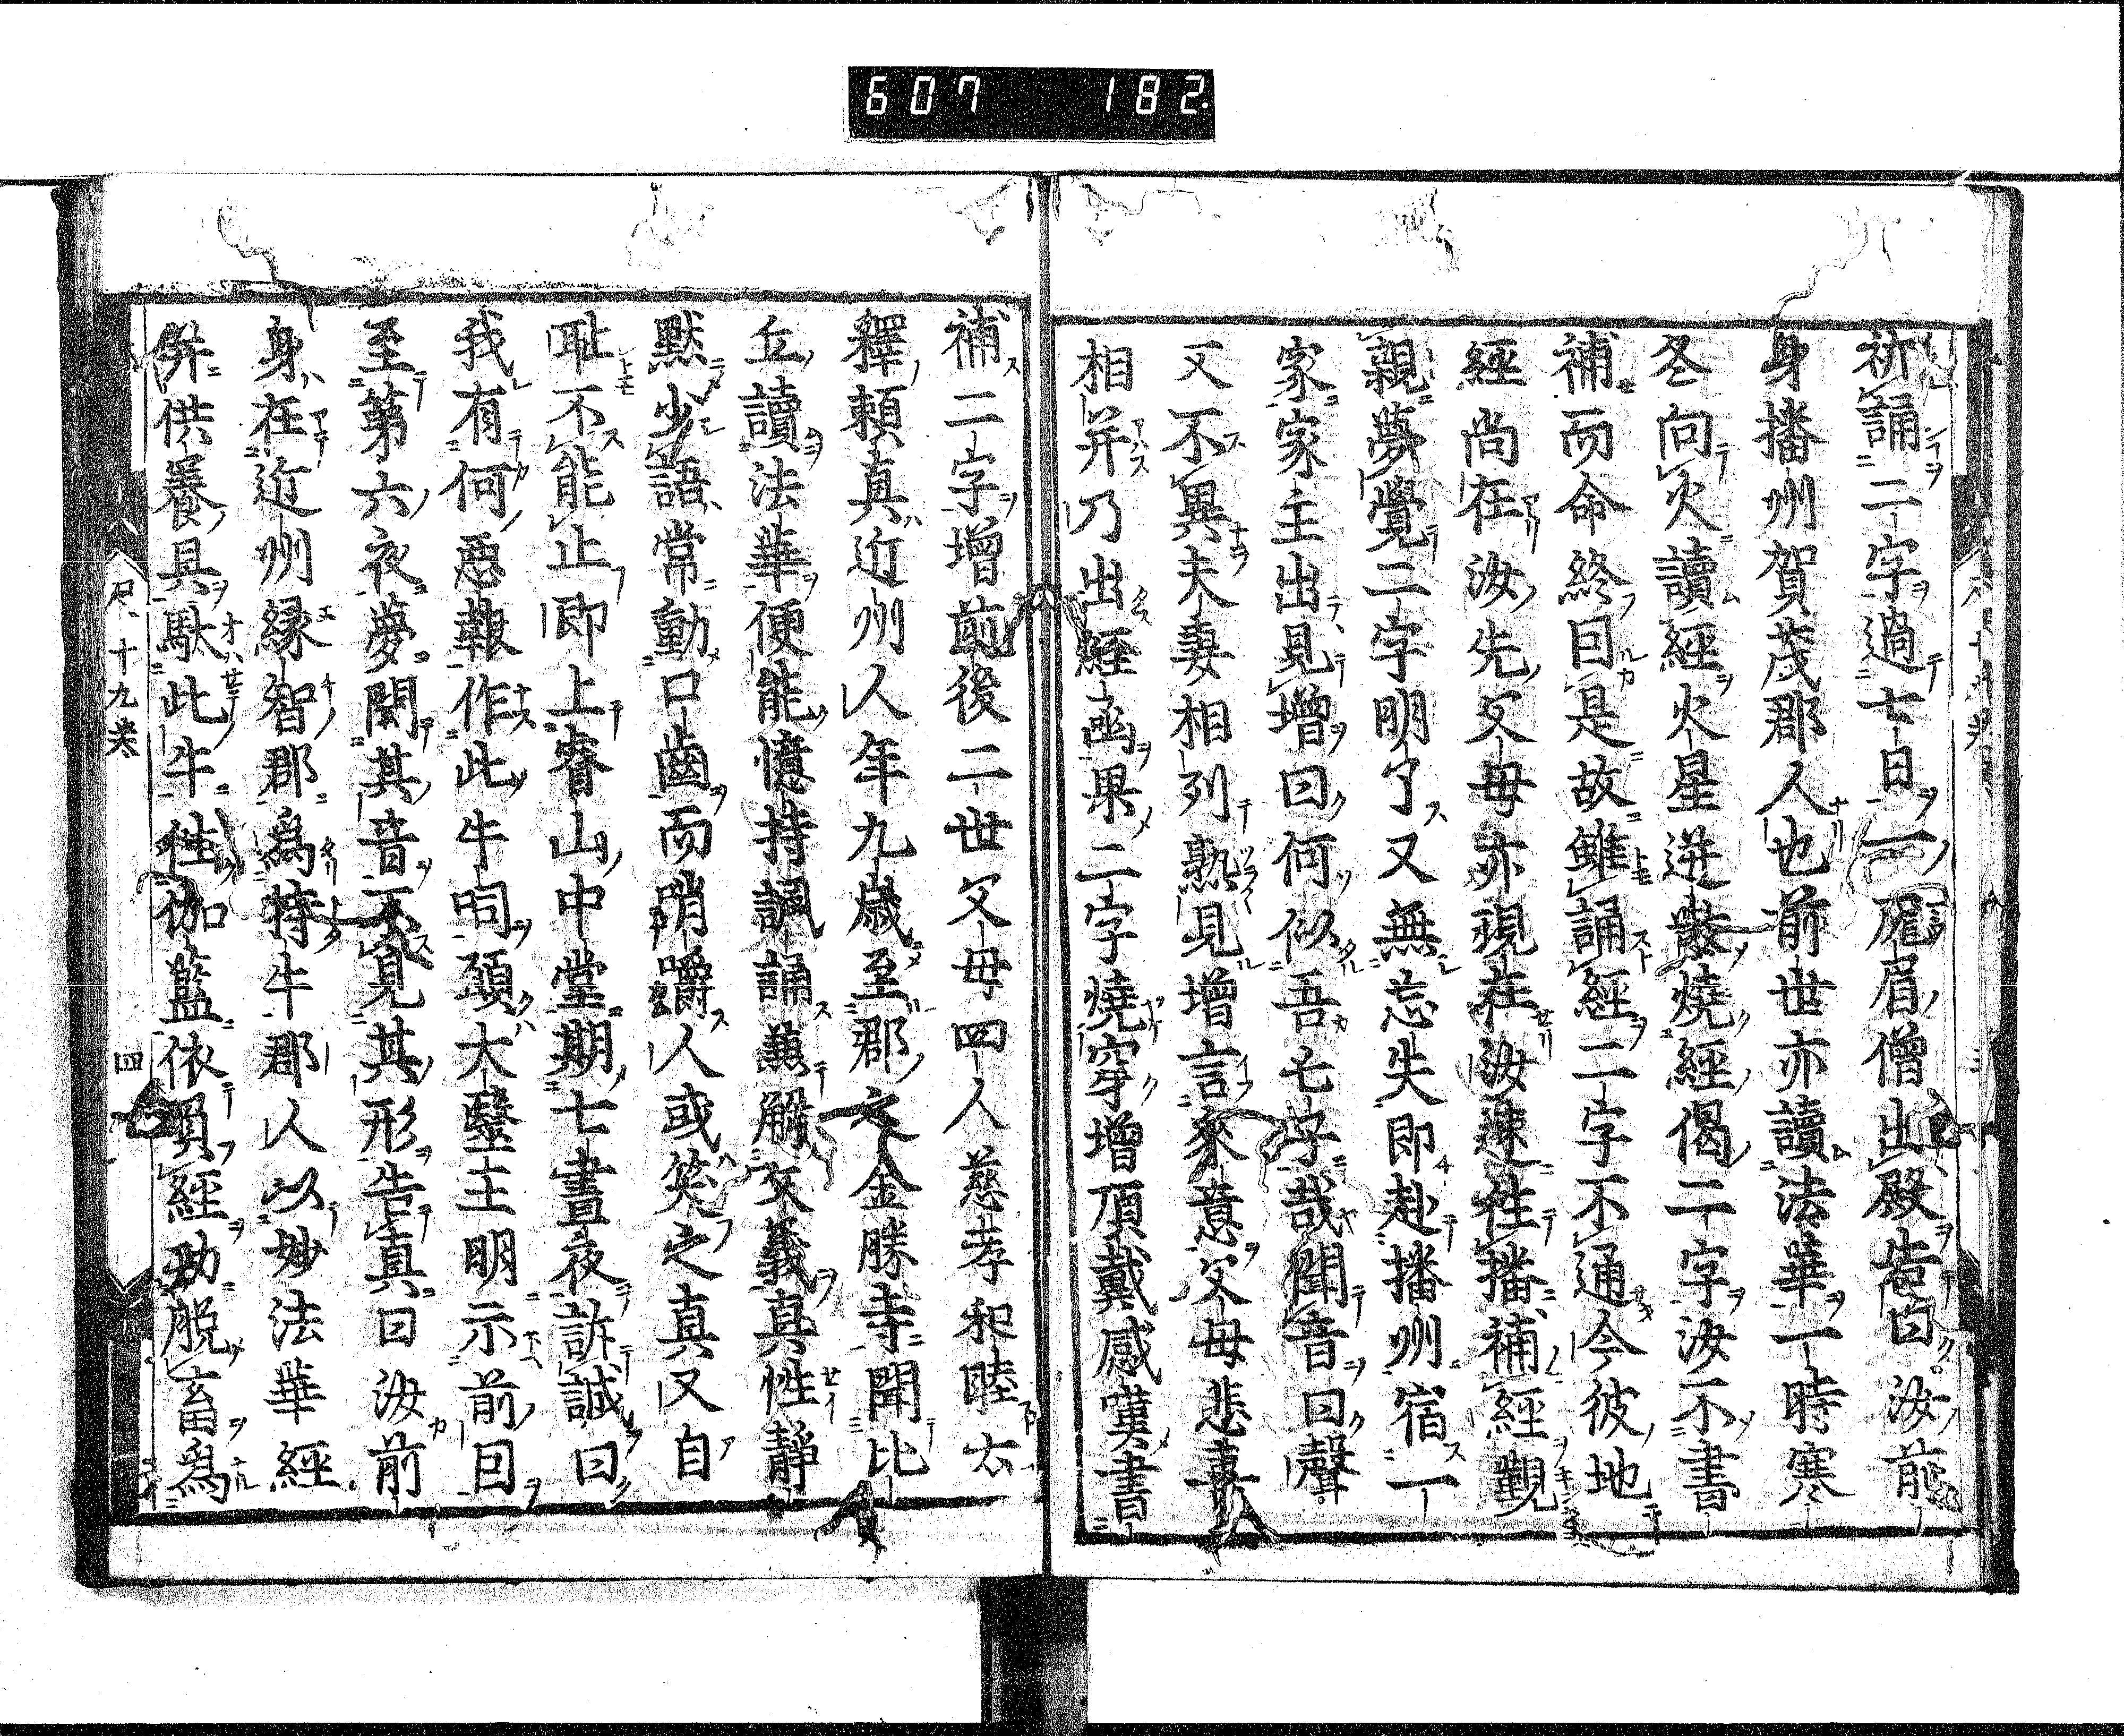 607 182
祈誦二字過七日一厖眉僧出殿告曰汝前
身播州賀茂郡人也前世亦讀法華一時寒
冬向火讀經火星迸散燒經偈二字汝不書
補而命終曰是故雖誦經二字不通今彼地
經尚在汝先父母亦現在汝速往播補經觀
親夢覺二字明了又無忘失即赴播州宿一
家家主出見增曰何似吾亡子哉聞音曰聲
又不異夫妻相列熟見增言來意父母悲喜
相并乃出經函果二字燒穿增頂戴感嘆書
補二字增前後二世父母四人慈孝和睦太
釋賴真近州人年九歲至郡之金勝寺聞比
丘讀法華便能憶持諷誦兼解文義真性靜
默少語常動口齒而嚼人或笑之真又自
恥不能止即上睿山中堂期七晝夜訴誠曰
我有何惡報作此牛呞願大醫王明示前因
至第六夜夢聞其音不見其形告真曰汝前
身在近州縁智郡爲特牛郡人以妙法華經
并供養具駄此牛往伽藍依負經功脱畜爲
尺 十九卷
四